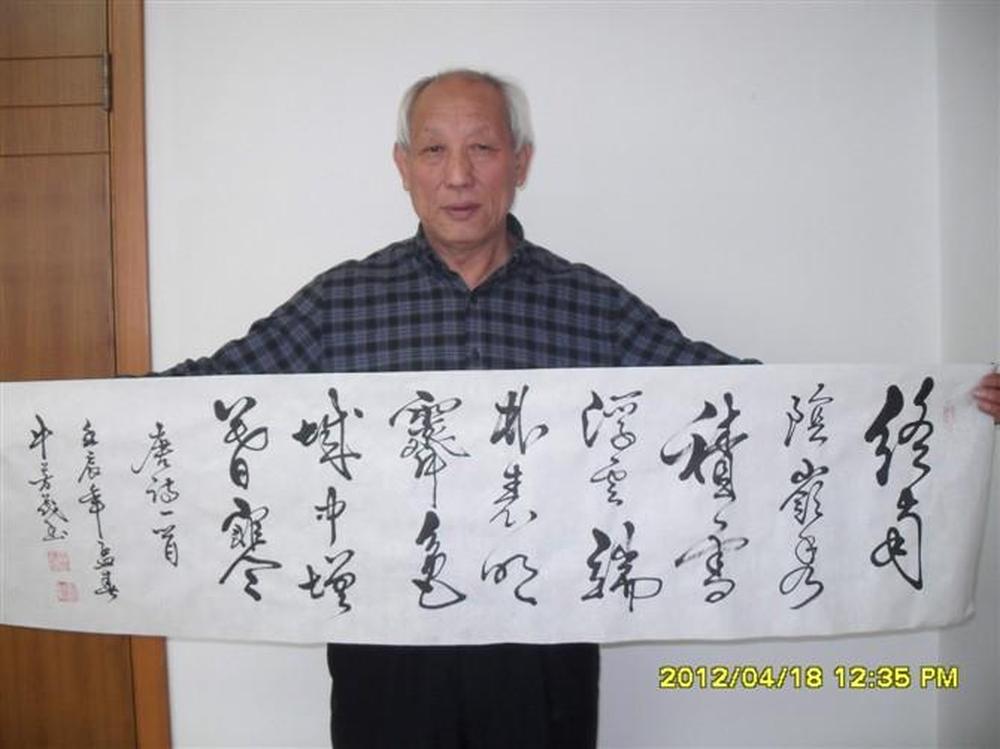 终南
陰嶺秀
積雪
浮云端
林表明
霽色
城中增
暮寒
唐诗一首
壬辰年孟春
牛芳书
2012/04/18 12:35 PM